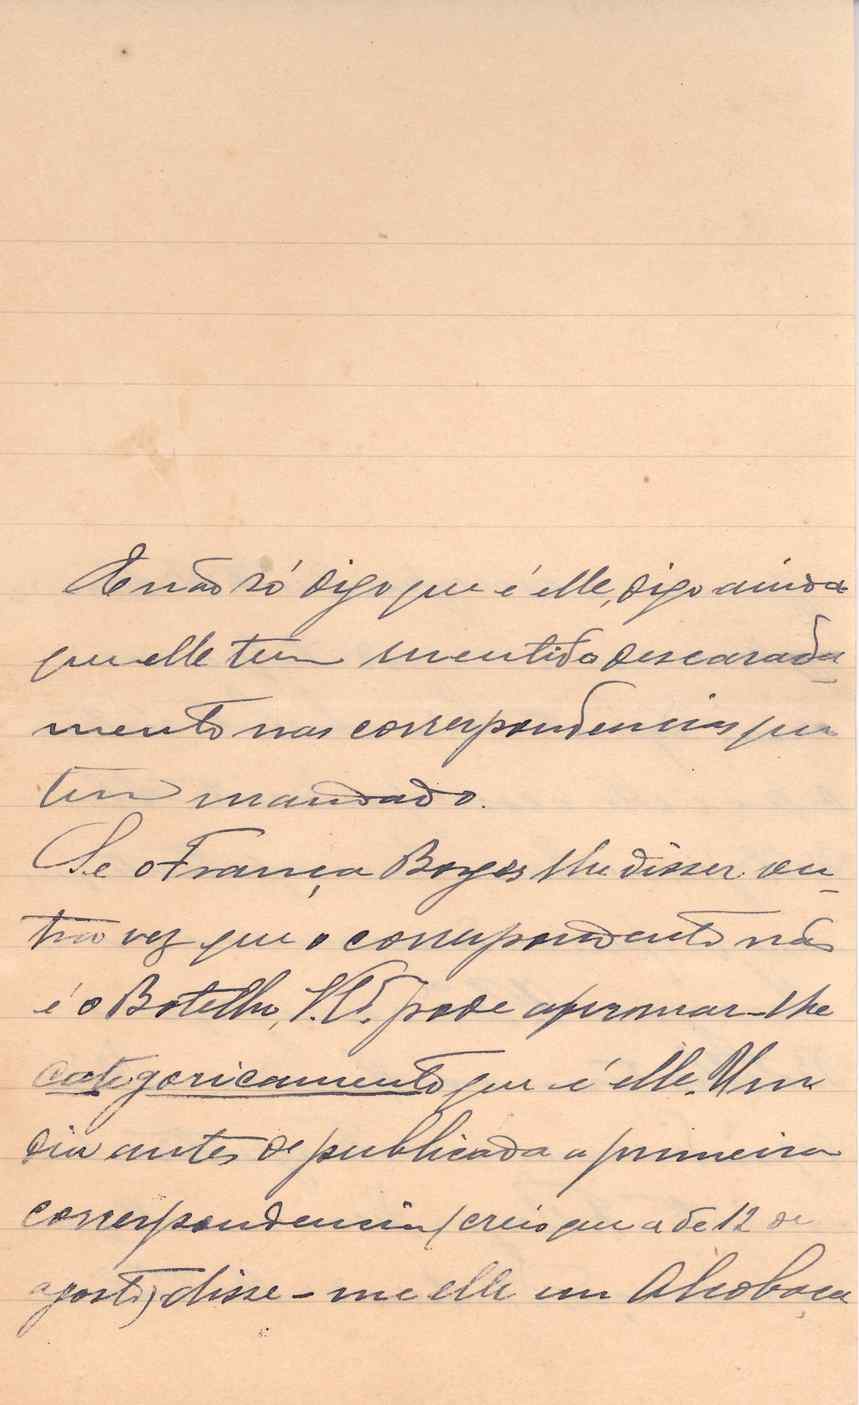 E não só digo que é elle, digo ainda
que elle tem mentido descarada-
mente nas correspondencias que
tem mandado.
Se o França Borges lhe disser ou-
tra vez que o correspondente não
é o Botelho, V. Ex.ª pode afirmar-lhe
categoricamente que é elle. Um
dia antes de publicada a primeira
correspondencia (creio que a de 12 de
agosto) disse-me elle em Alcobaça